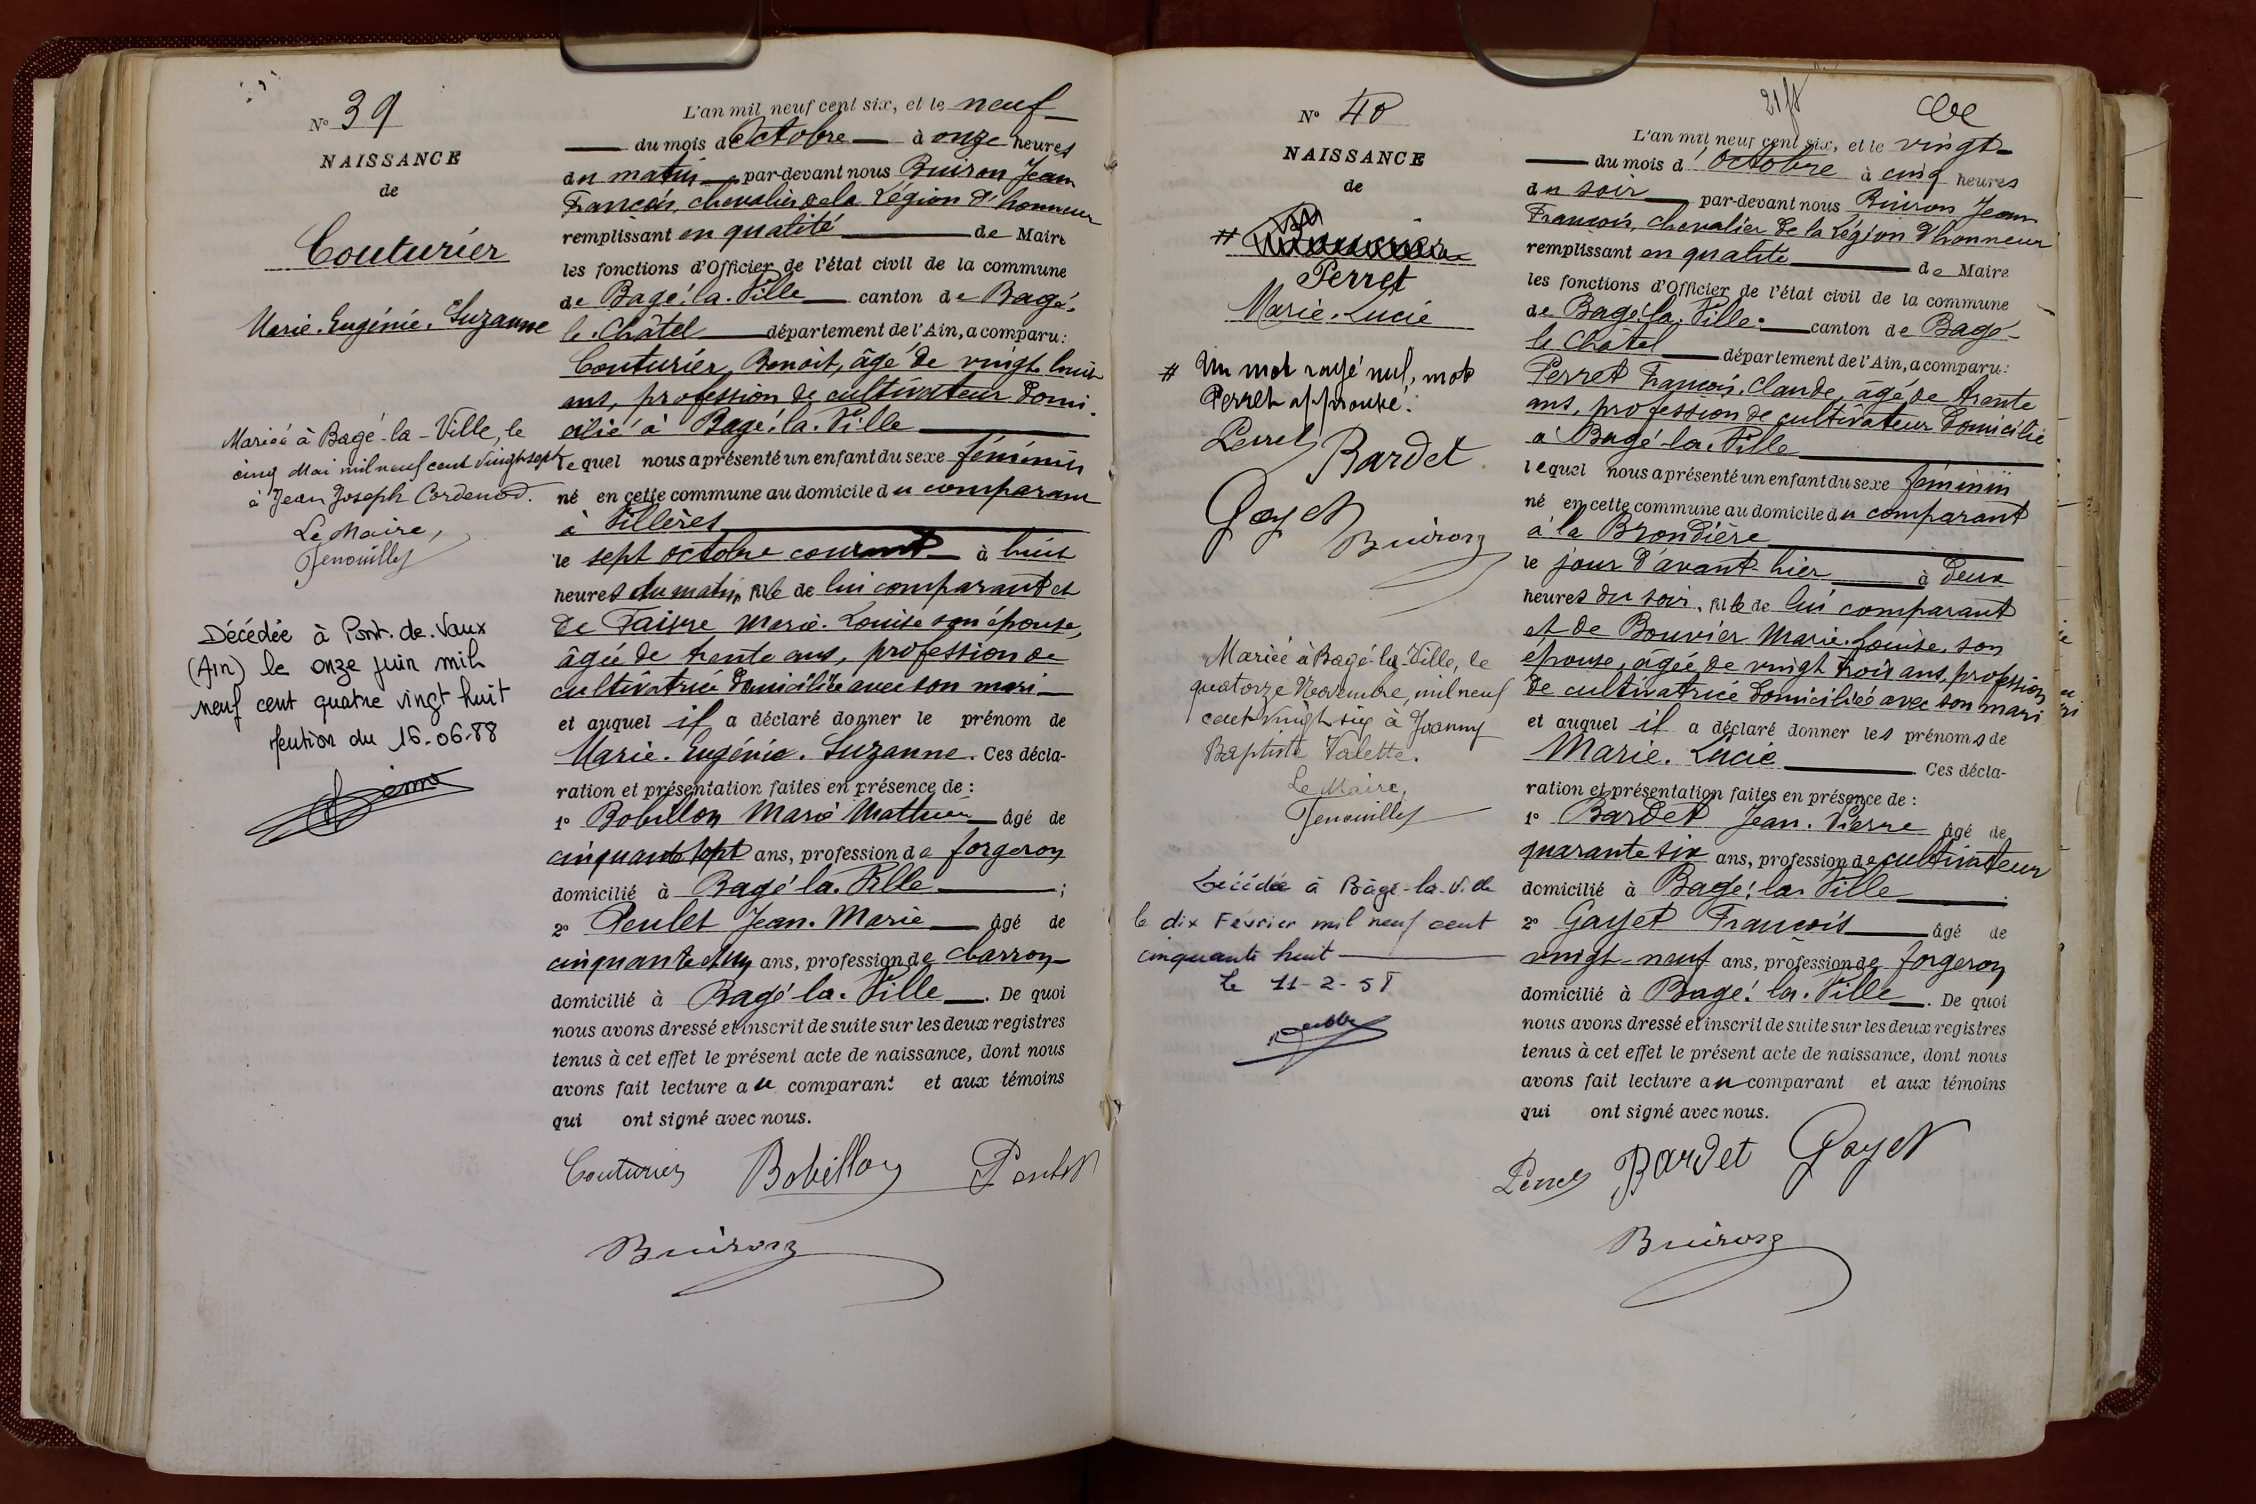 N° 39
NAISSANCE
de
Couturier
Marie. Eugénie. Suzanne
Mariée à Bagé-la-Ville, le
cinq Mai mil neuf cent vingt sept
à Jean Joseph Cordenod.
Le Maire,
Fenouillet
Décédée à Pont.de.Vaux
(Ain) le onze juin mil
neuf cent quatre vingt huit
Mention du 16-06-88
L'an mil neuf cent six, et le neuf
du mois d'Octobre à onze heures
du matin par-devant nous Buiron Jean
François, chevalier de la Légion d'honneur
remplissant en qualité de Maire
les fonctions d'Officier de l'état civil de la commune
de Bagé.la.Ville canton de Bagé.
le.Châtel département de l'Ain, a comparu:
Couturier Benoit, âgé de vingt huit
ans, profession de cultivateur domi.
cilié à Bagé.la.Ville
lequel nous a présenté un enfant du sexe féminin
né en cette commune au domicile du comparant
à Villères
le sept octobre courant à huit
heures du matin, fille de lui comparant et
de Faivre Marie. Louise son épouse,
âgée de trente ans, profession de
cultivatrice domiciliée avec son mari
et auquel il a déclaré donner le prénom de
Marie. Eugénie. Suzanne. Ces décla-
ration et présentation faites en présence de :
1° Bobillon Marie Mathieu âgé de
cinquante sept ans, profession de forgeron
domicilié à Bagé la.Ville ;
2° Peulet Jean. Marie âgé de
cinquante et un ans, profession de charron
domicilié à Bagé la.Ville. De quoi
nous avons dressé et inscrit de suite sur les deux registres
tenus à cet effet le présent acte de naissance, dont nous
avons fait lecture au comparant et aux témoins
qui ont signé avec nous.
Couturier Bobillon Peulet
Buiron
N° 40
NAISSANCE
de
#
Perret
Marie. Lucie
# Un mot rayé nul, mot
Perret approuvé.
Perret Bardet
Gayet
Buiron
Mariée à Bagé-la-Ville, le
quatorze Novembre, mil neuf
cent vingt six à Joanny
Baptiste Valette.
Le Maire,
Fenouillet
Décédée à Bâgé-la-Ville
le dix Février mil neuf cent
cinquante huit
Le 11-2-58
L'an mil neuf cent six, et le vingt
du mois d'Octobre à cinq heures
du soir par-devant nous Buiron Jean
François, chevalier de la Légion d'honneur
remplissant en qualité de Maire
les fonctions d'Officier de l'état civil de la commune
de Bagé.la.Ville. canton de Bagé-
le Châtel département de l'Ain, a comparu:
Perret François. Claude, âgé de trente
ans, profession de cultivateur domicilié
à Bagé-la.Ville
lequel nous a présenté un enfant du sexe féminin
né en cette commune au domicile du comparant
à la Brondière
le jour d'avant-hier à deux
heures du soir, fille de lui comparant
et de Bouvier Marie. Louise, son
épouse, âgée de vingt trois ans, profession
de cultivatrice domiciliée avec son mari
et auquel il a déclaré donner les prénoms de
Marie. Lucie. Ces décla-
ration et présentation faites en présence de :
1° Bardet Jean. Pierre âgé de
quarante six ans, profession de cultivateur
domicilié à Bagé.la.Ville
2° Gayet François âgé de
vingt-neuf ans, profession de forgeron
domicilié à Bagé.la.Ville. De quoi
nous avons dressé et inscrit de suite sur les deux registres
tenus à cet effet le présent acte de naissance, dont nous
avons fait lecture au comparant et aux témoins
qui ont signé avec nous.
Perret Bardet Gayet
Buiron